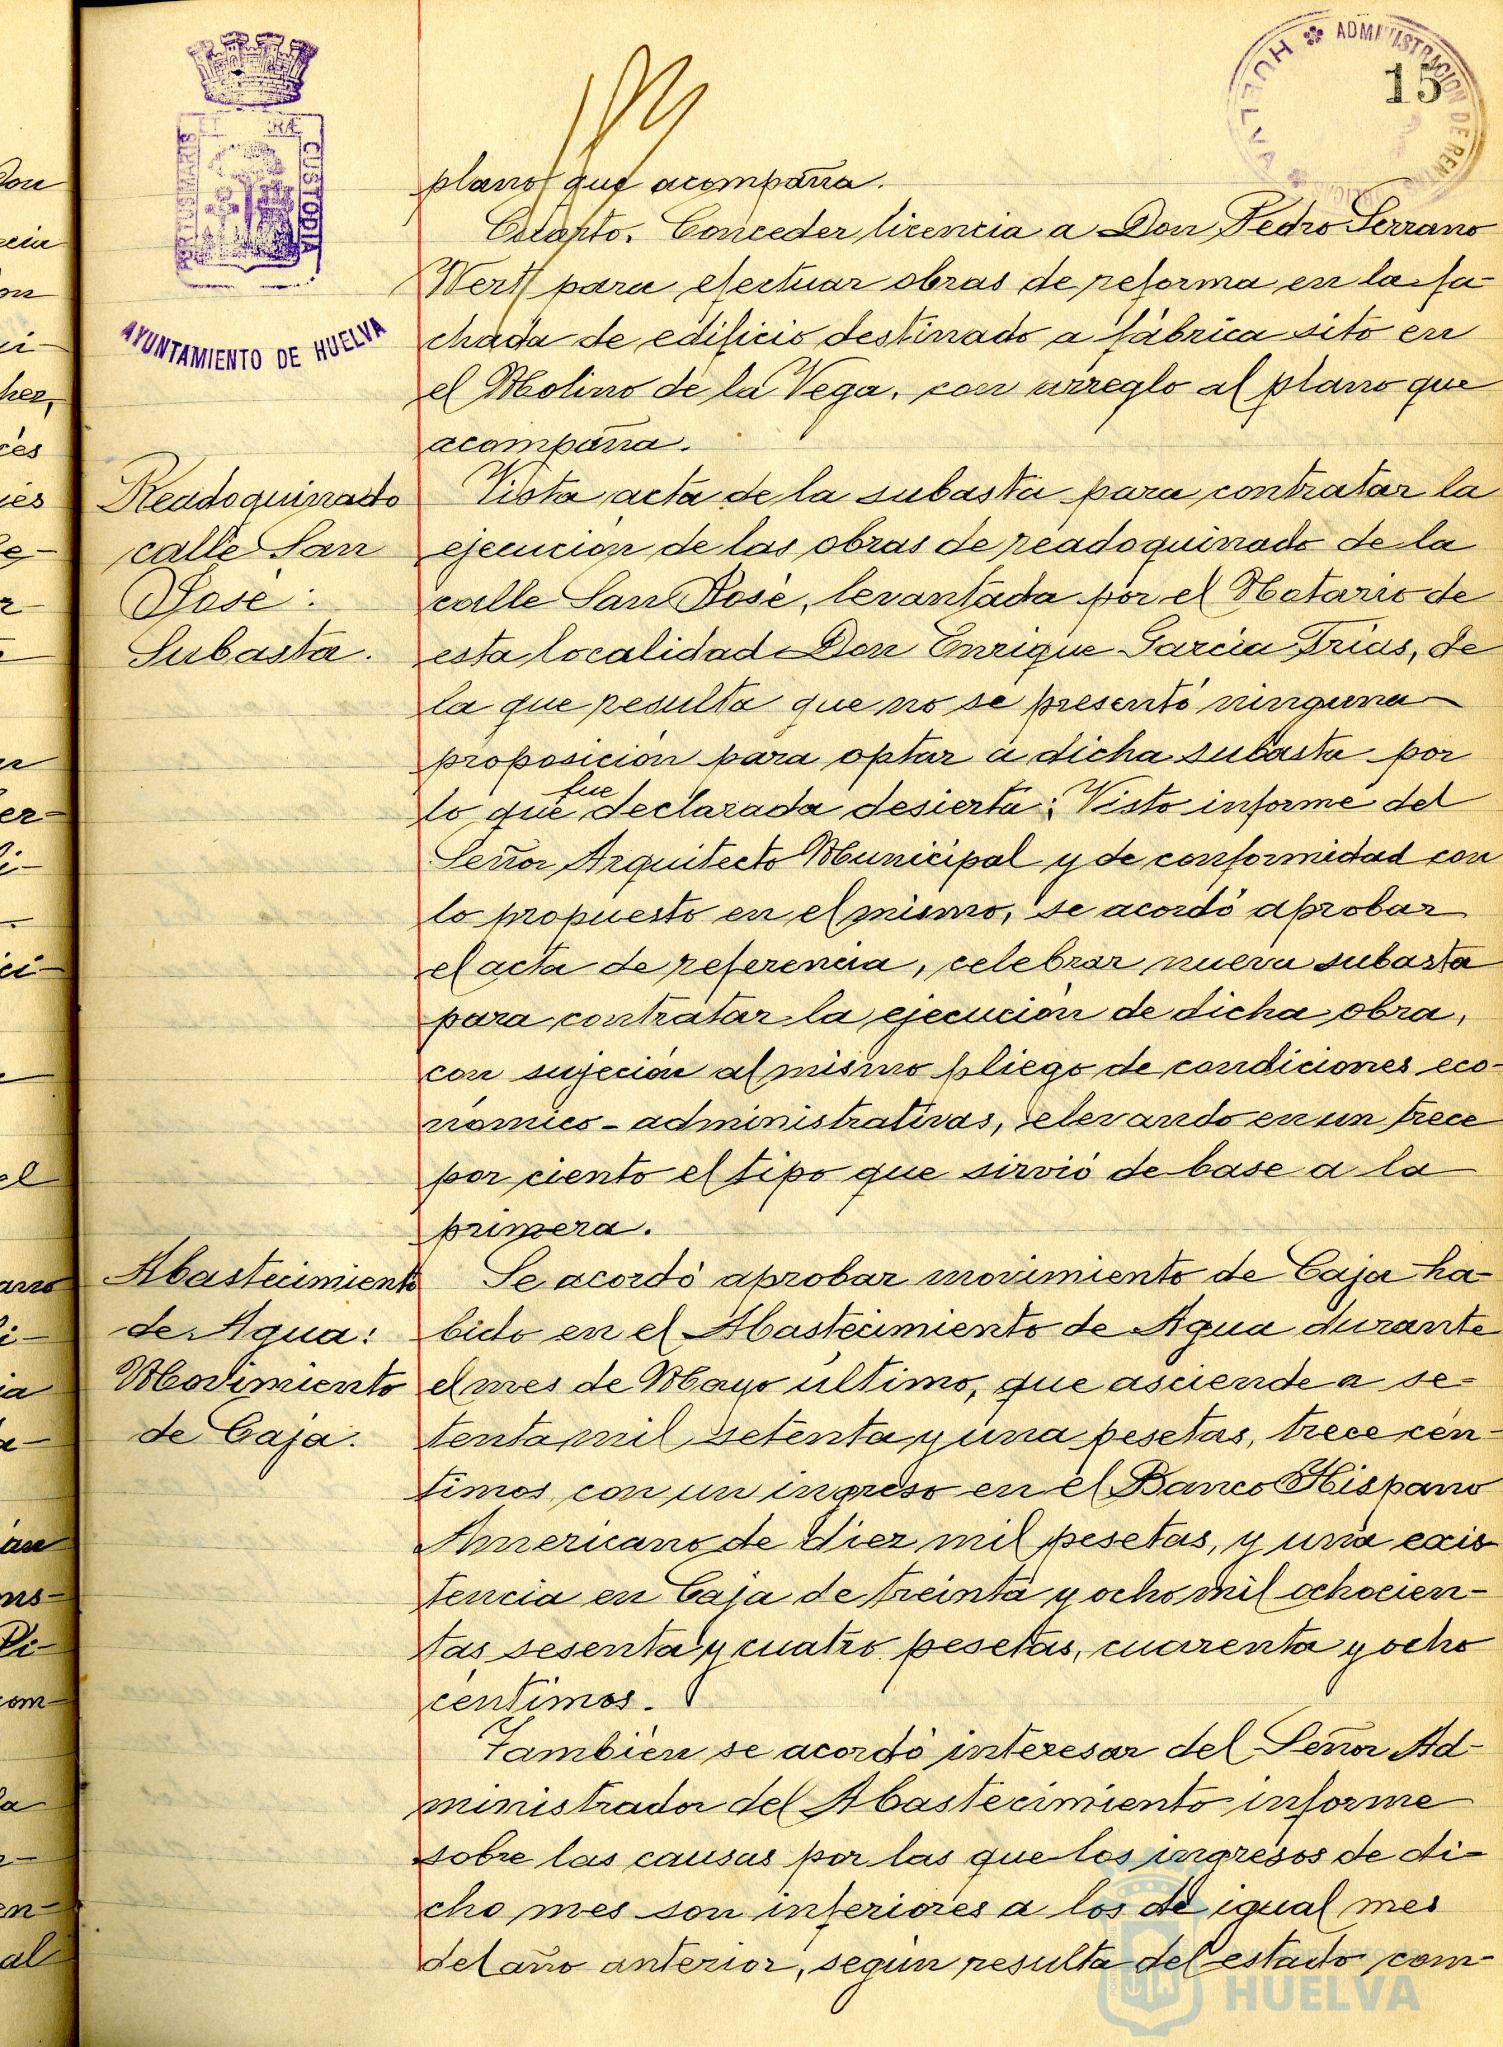 15
HUELVA ADMINISTRACION DE RENTAS PUBLICAS
PORTUS MARIS ET TERRÆ CUSTODIA
AYUNTAMIENTO DE HUELVA
plano que acompaña.
Cuarto. Conceder licencia a Don Pedro Serrano
Wert para efectuar obras de reforma en la fa-
chada de edificio destinado a fábrica sito en
el Molino de la Vega, con arreglo al plano que
acompaña.
Readoquinado
calle San
José:
Subasta.
Vista acta de la subasta para contratar la
ejecución de las obras de readoquinado de la
calle San José, levantada por el Notario de
esta localidad Don Enrique García Frías, de
la que resulta que no se presentó ninguna
proposición para optar a dicha subasta por
lo que fue declarada desierta: Visto informe del
Señor Arquitecto Municipal y de conformidad con
lo propuesto en el mismo, se acordó aprobar
el acta de referencia, celebrar nueva subasta
para contratar la ejecución de dicha obra,
con sujeción al mismo pliego de condiciones eco-
nómico-administrativas, elevando en un trece
por ciento el tipo que sirvió de base a la
primera.
Abastecimiento
de Agua:
Movimiento
de Caja.
Se acordó aprobar movimiento de Caja ha-
bido en el Abastecimiento de Agua durante
el mes de Mayo último, que asciende a se-
tenta mil setenta y una pesetas, trece cén-
timos con un ingreso en el Banco Hispano
Americano de diez mil pesetas, y una exis
tencia en Caja de treinta y ocho mil ochocien-
tas sesenta y cuatro pesetas, cuarenta y ocho
céntimos.
También se acordó interesar del Señor Ad-
ministrador del Abastecimiento informe
sobre las causas por las que los ingresos de di-
cho mes son inferiores a los de igual mes
del año anterior, según resulta del estado com-
HUELVA